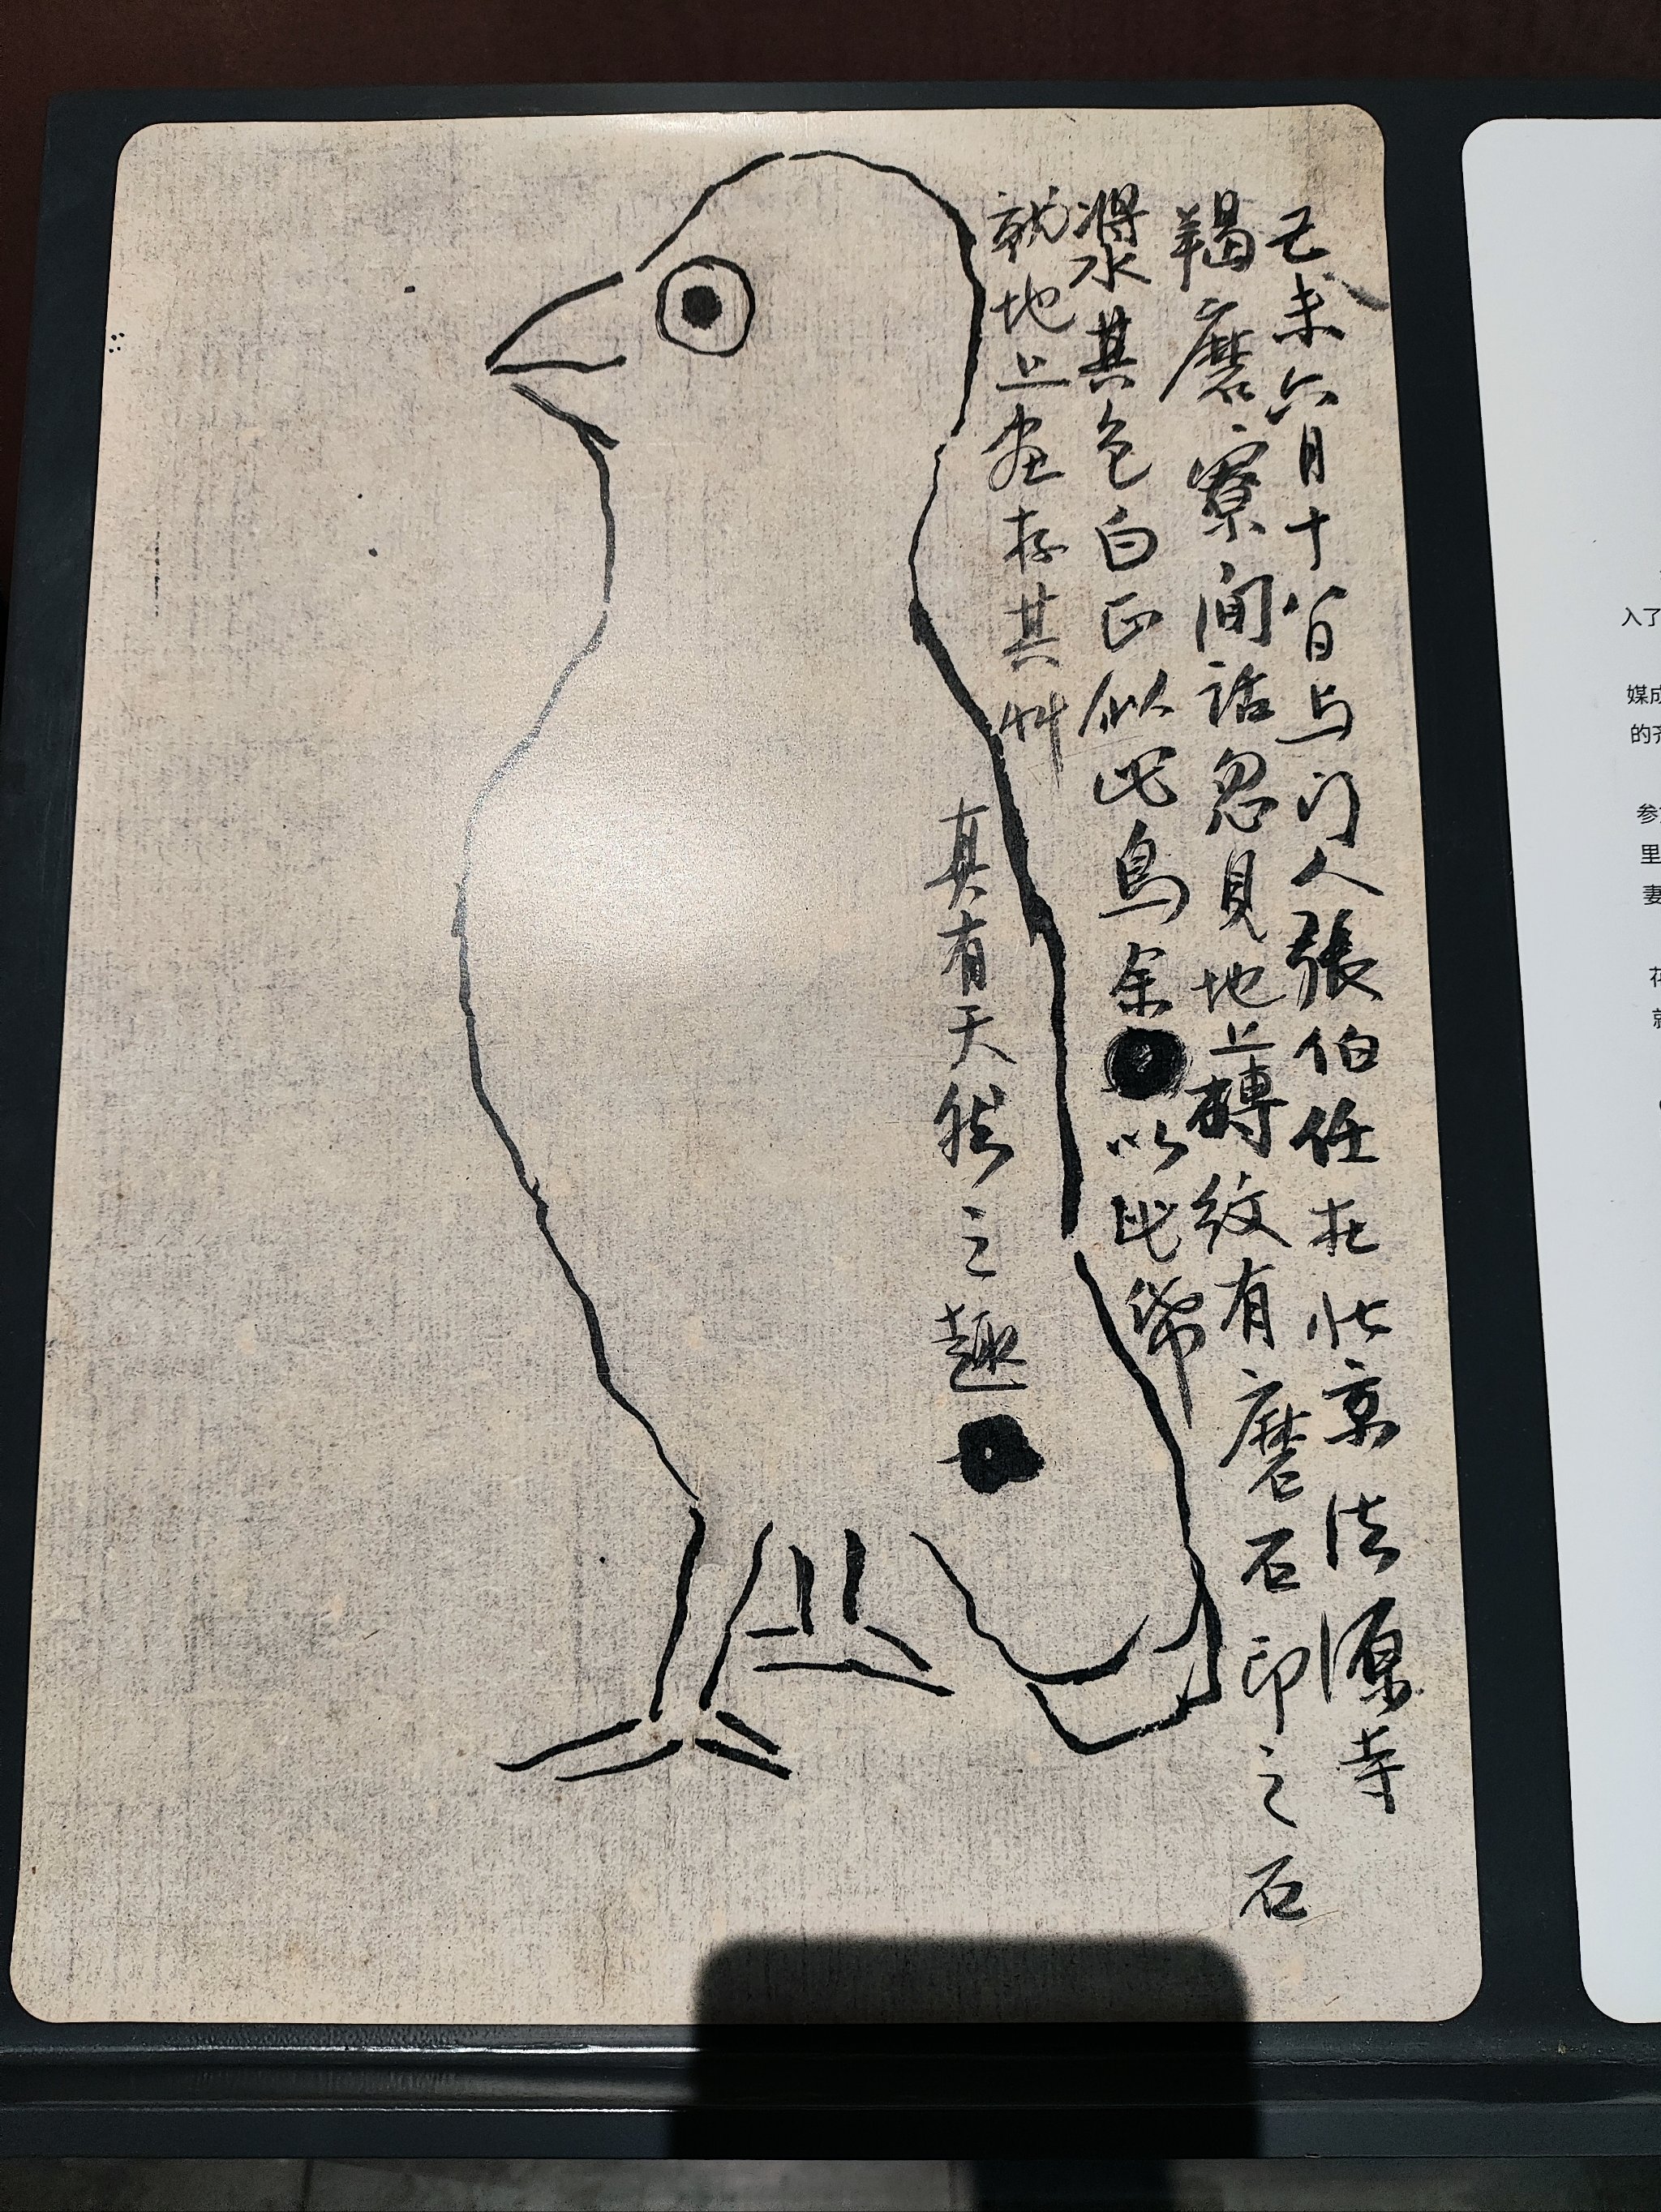 己未六月十八日与门人張伯任在北京法源寺
羯磨寮间話忽見地上磚纹有磨石印之石
浆水其色白正似此鳥余以此纸
就地上画存其草
真有天然之趣
入了
媒成
的齐
参
里
妻